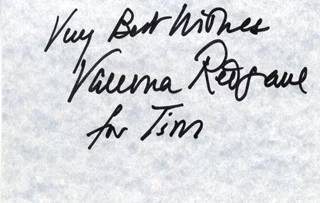 Very Best Wishes
Vanessa Redgrave
for Tim